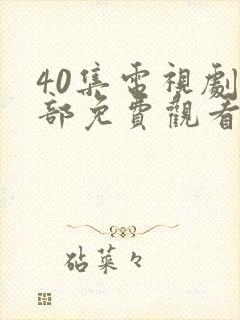 40集電視劇
部免費觀看
砧菜々